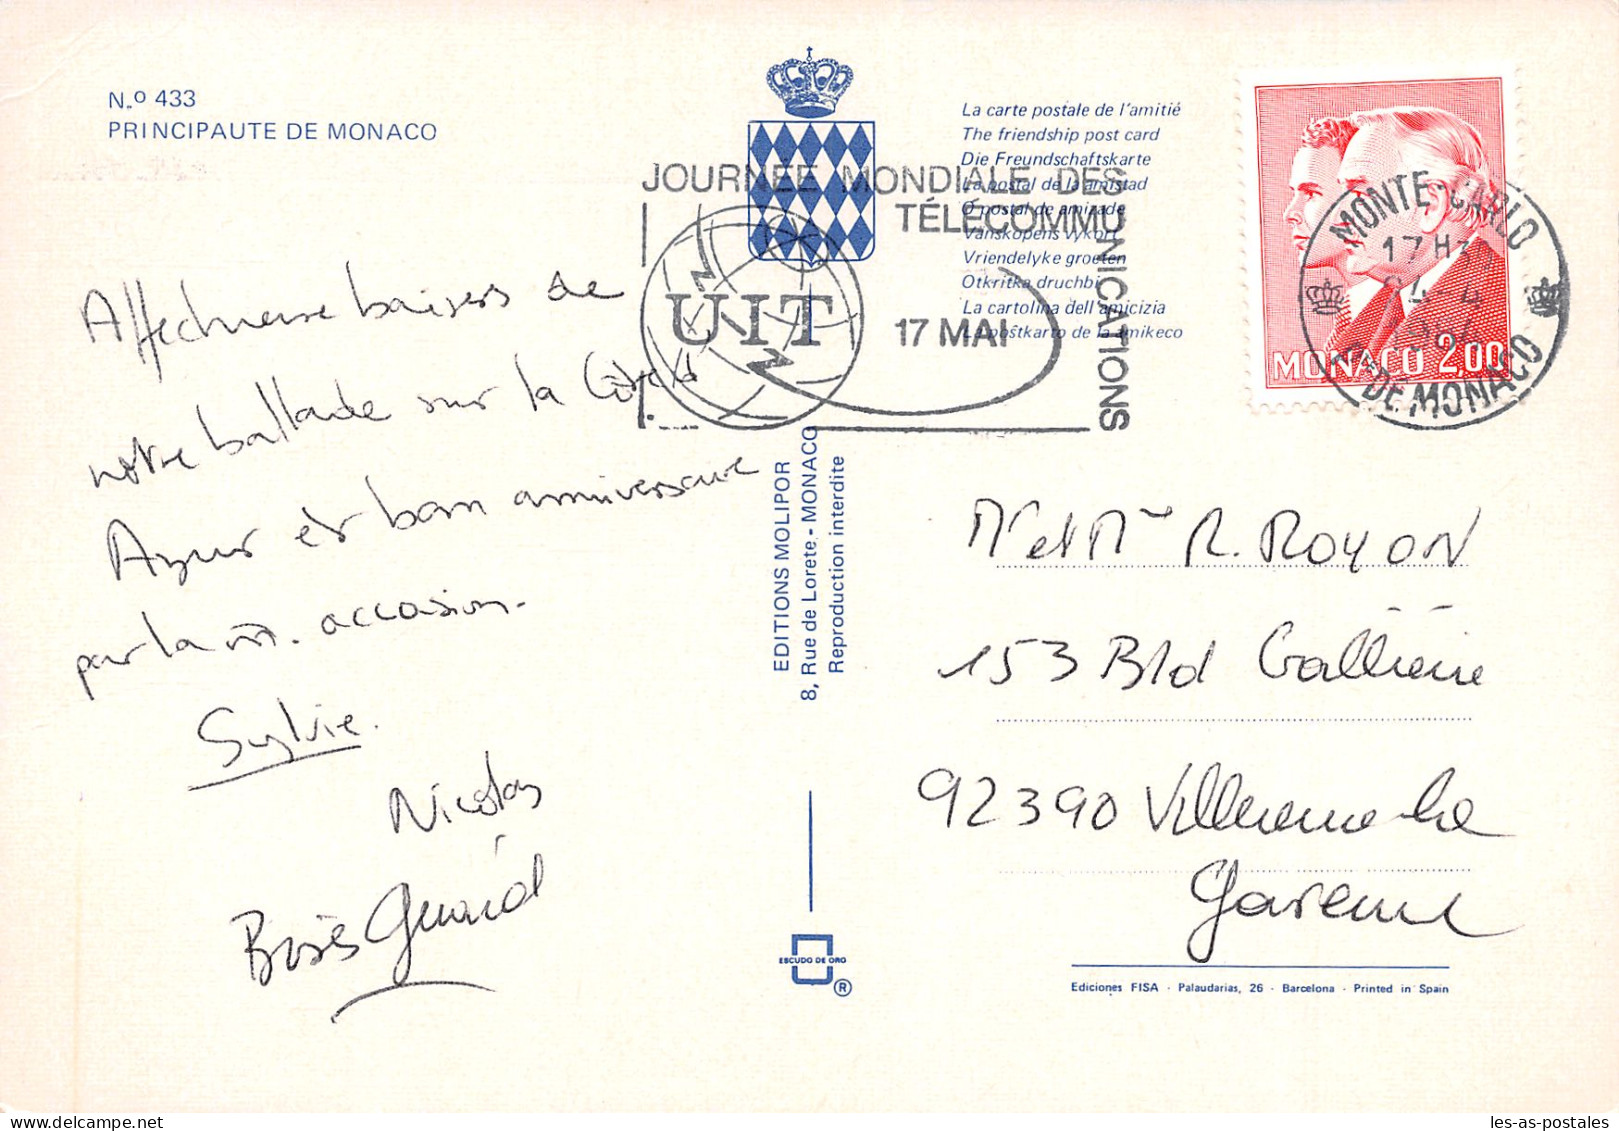 N.º 433
PRINCIPAUTE DE MONACO
La carte postale de l'amitié
The friendship post card
Die Freundschaftskarte
La postal de la amistad
O postal de amizade
Vänskapens vykort
Vriendelyke groeten
Otkritka druchbi
La cartolina dell'amicizia
La poŝtkarto de la amikeco
JOURNEE MONDIALE DES
TÉLÉCOMMU
NICATIONS
UIT
17 MAI
MONTE-CARLO
17 H
PTE DE MONACO
MONACO 2.00
Affectueux baisers de
notre ballade sur la Côte d'
Azur et bon anniversaire
par la m. occasion.
Sylvie.
Nicolas
Boris Guérard
EDITIONS MOLIPOR
8, Rue de Lorete - MONACO
Reproduction interdite
Mr et Mme R. ROYON
153 Bld Galliéni
92390 Villeneuve-la
Garenne
ESCUDO DE ORO
®
Ediciones FISA - Palaudarias, 26 - Barcelona - Printed in Spain
les-as-postales